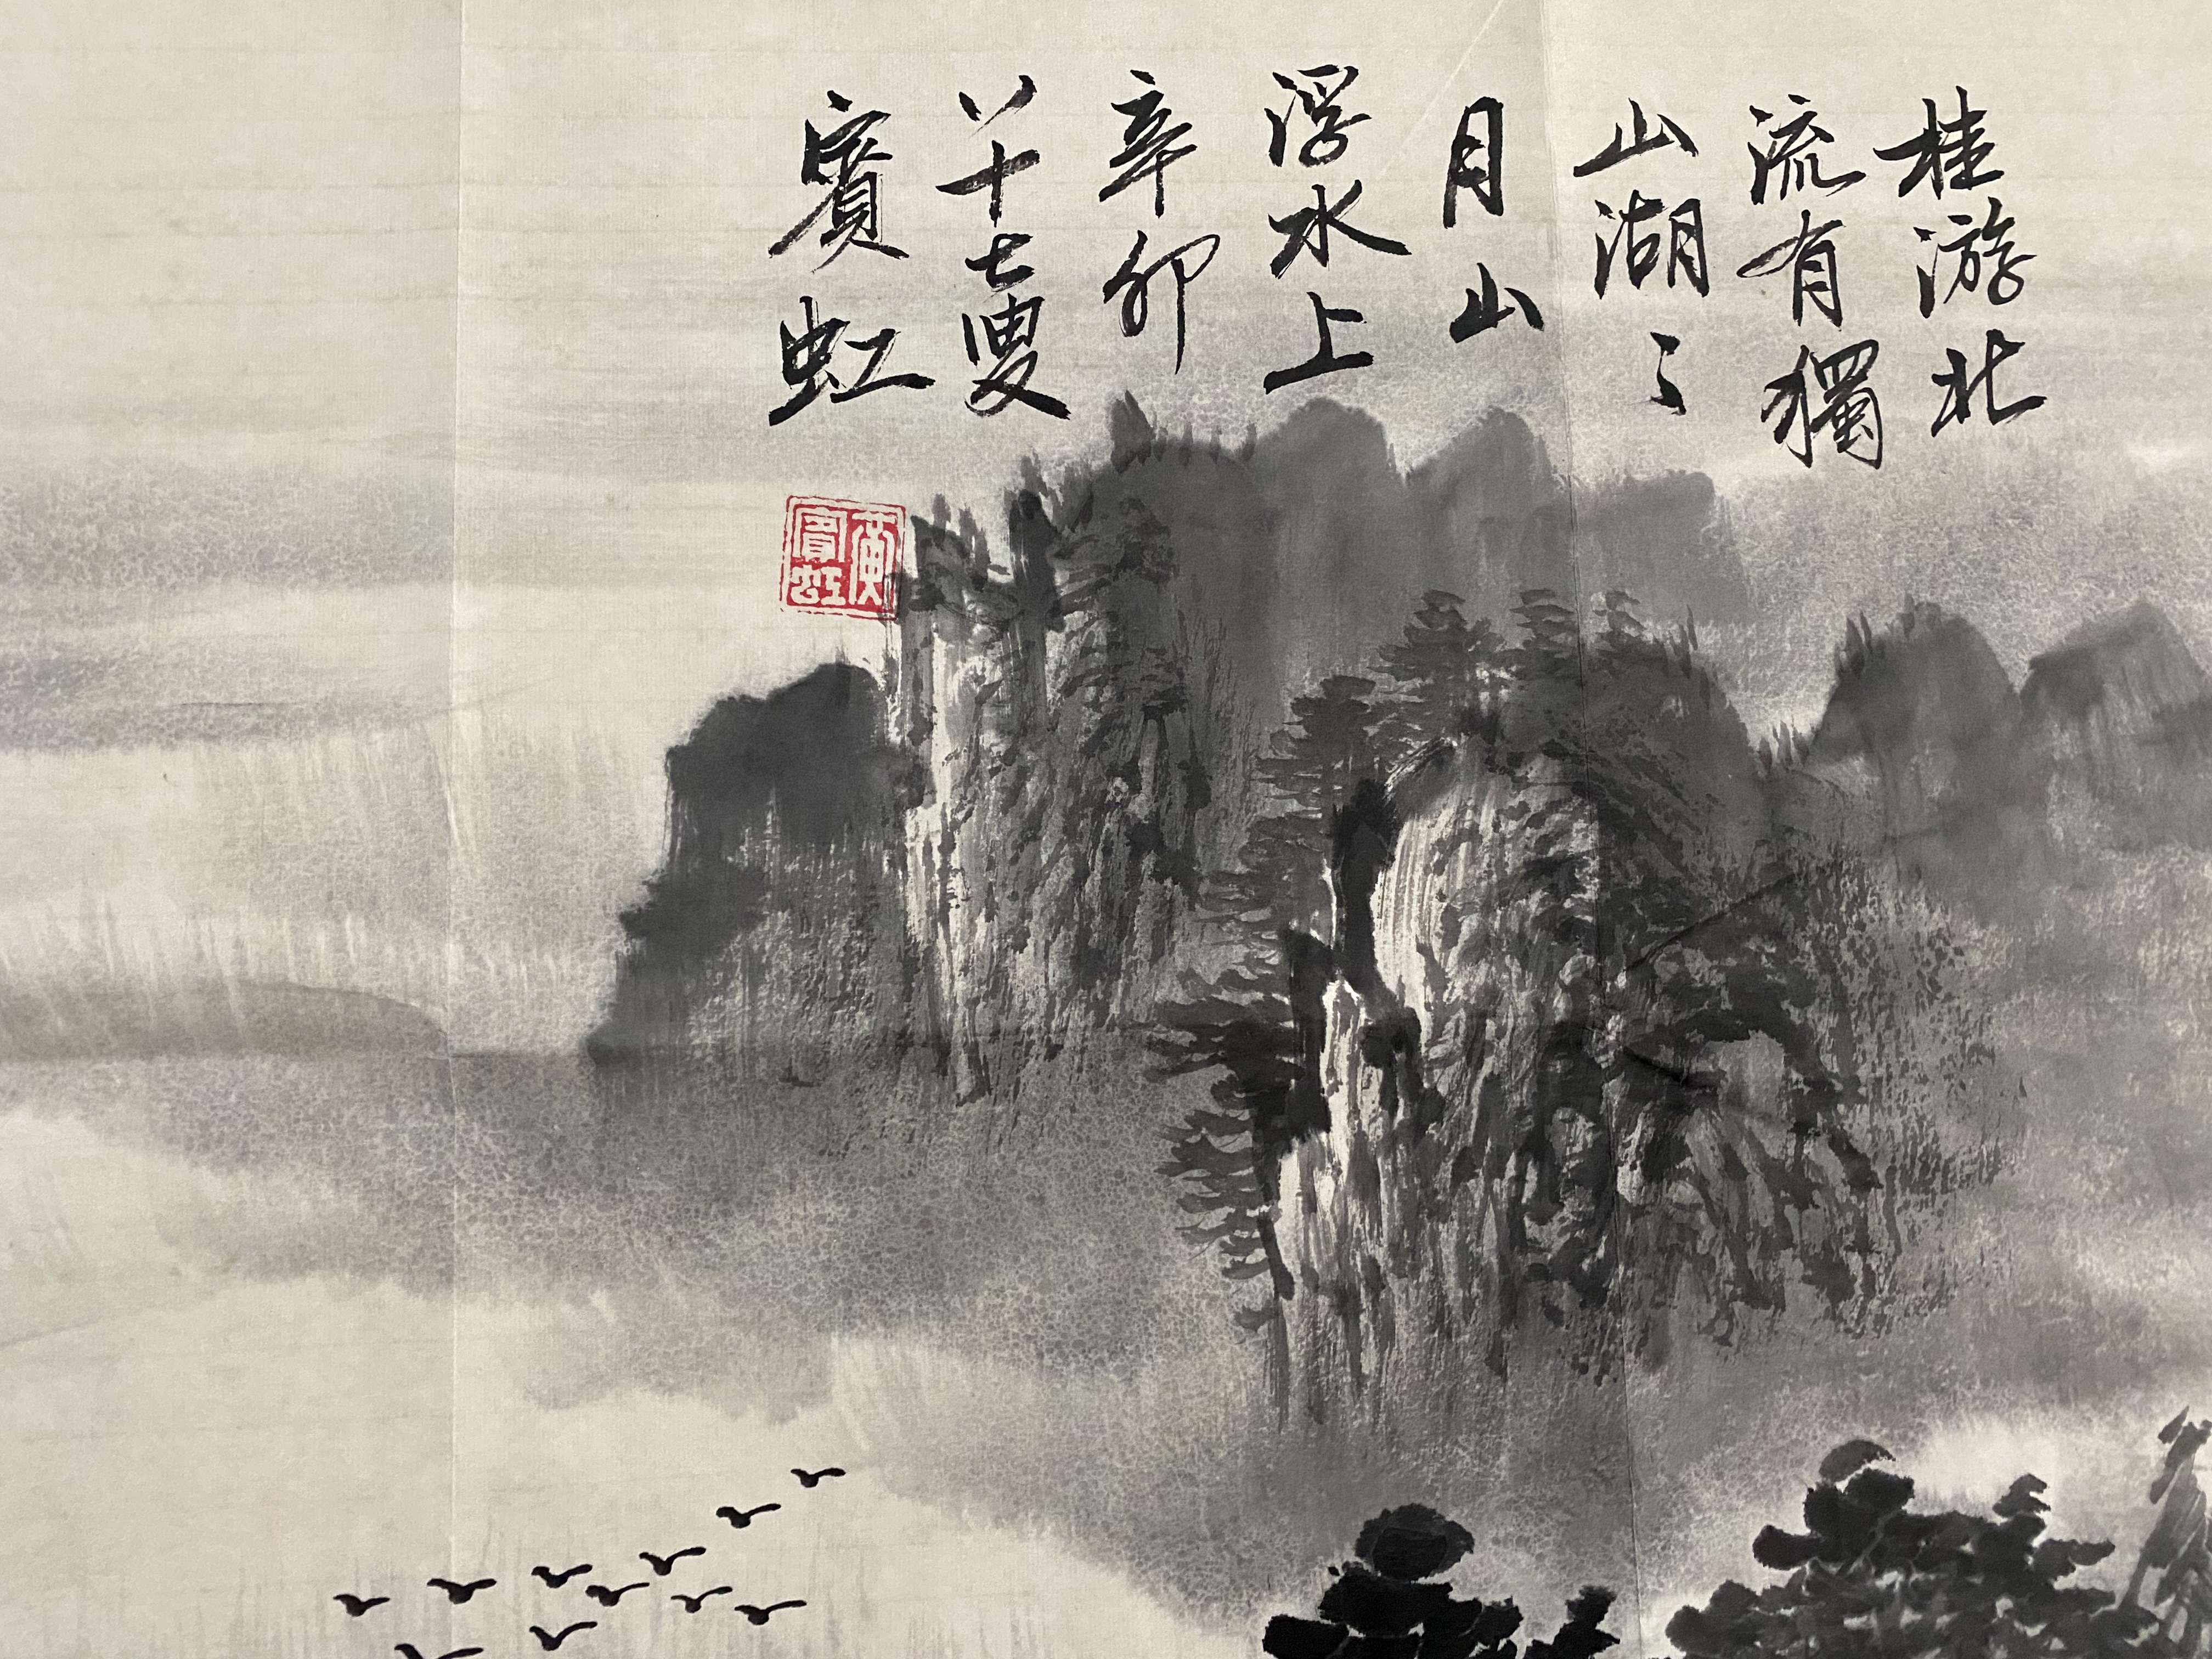 桂游北
流有獨
山湖〻
月山
浮水上
辛卯
八十七叟
賓虹
黃賓虹